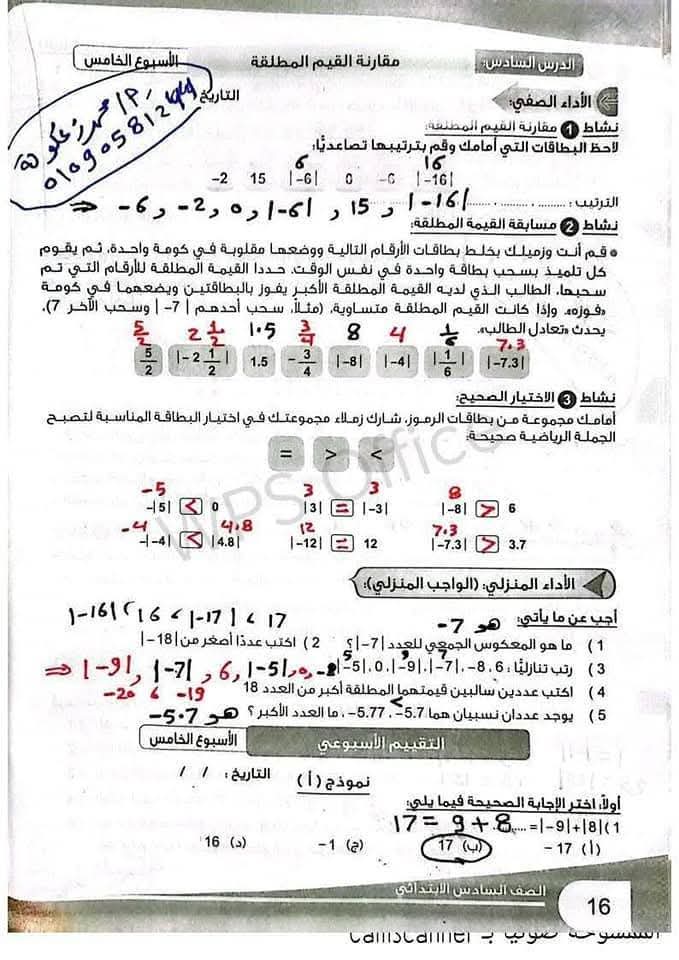 الدرس السادس: مقارنة القيم المطلقة الأسبوع الخامس
م/ محمد
01090581244
الأداء الصفي: التاريخ
نشاط 1 مقارنة القيم المطلقة:
لاحظ البطاقات التي أمامك وقم بترتيبها تصاعديًا:
6 16
-2 15 |-6| 0 -6 |-16|
الترتيب: ⇒ -6 , -2 , 0 , |-6| , 15 , |-16|
نشاط 2 مسابقة القيمة المطلقة:
* قم أنت وزميلك بخلط بطاقات الأرقام التالية ووضعها مقلوبة في كومة واحدة، ثم يقوم
كل تلميذ بسحب بطاقة واحدة في نفس الوقت. حددا القيمة المطلقة للأرقام التي تم
سحبها، الطالب الذي لديه القيمة المطلقة الأكبر يفوز بالبطاقتين ويضعهما في كومة
«فوزه». وإذا كانت القيم المطلقة متساوية، (مثلًا، سحب أحدهم |-7| وسحب الآخر 7).
يحدث «تعادل الطالب».
5/2 2 1/2 1.5 3/4 8 4 1/6 7.3
5/2 |-2 1/2| 1.5 -3/4 |-8| |-4| |1/6| |-7.3|
نشاط 3 الاختيار الصحيح:
أمامك مجموعة من بطاقات الرموز، شارك زملاء مجموعتك في اختيار البطاقة المناسبة لتصبح
الجملة الرياضية صحيحة:
= > <
-5 3 3 8
-|5| < 0 |3| = |-3| |-8| > 6
-4 4.8 12 7.3
-|-4| < |4.8| |-12| = 12 |-7.3| > 3.7
WPS Office
الأداء المنزلي: (الواجب المنزلي):
|-16| < 16 < |-17| < 17
أجب عن ما يأتي: هو -7
1) ما هو المعكوس الجمعي للعدد |-7|؟ 2) اكتب عددًا أصغر من |-18|
5 9 7
3) رتب تنازليًا: 6 ,-8 ,|-7| ,|-9| ,0 ,|-5| ⇒ |-9| , |-7| , 6 , |-5| , 0 , -8
4) اكتب عددين سالبين قيمتهما المطلقة أكبر من العدد 18 -20 6 -19
5) يوجد عددان نسبيان هما -5.7, -5.77، ما العدد الأكبر؟ هو -5.7
التقييم الأسبوعي الأسبوع الخامس
نموذج (أ) التاريخ: / /
أولًا، اختر الإجابة الصحيحة فيما يلي:
1) |8|+|-9|= ........ 17 = 9 + 8
(أ) -17 (ب) 17 (ج) -1 (د) 16
16 الصف السادس الابتدائي
الممسوحة ضوئيا بـ CamScanner